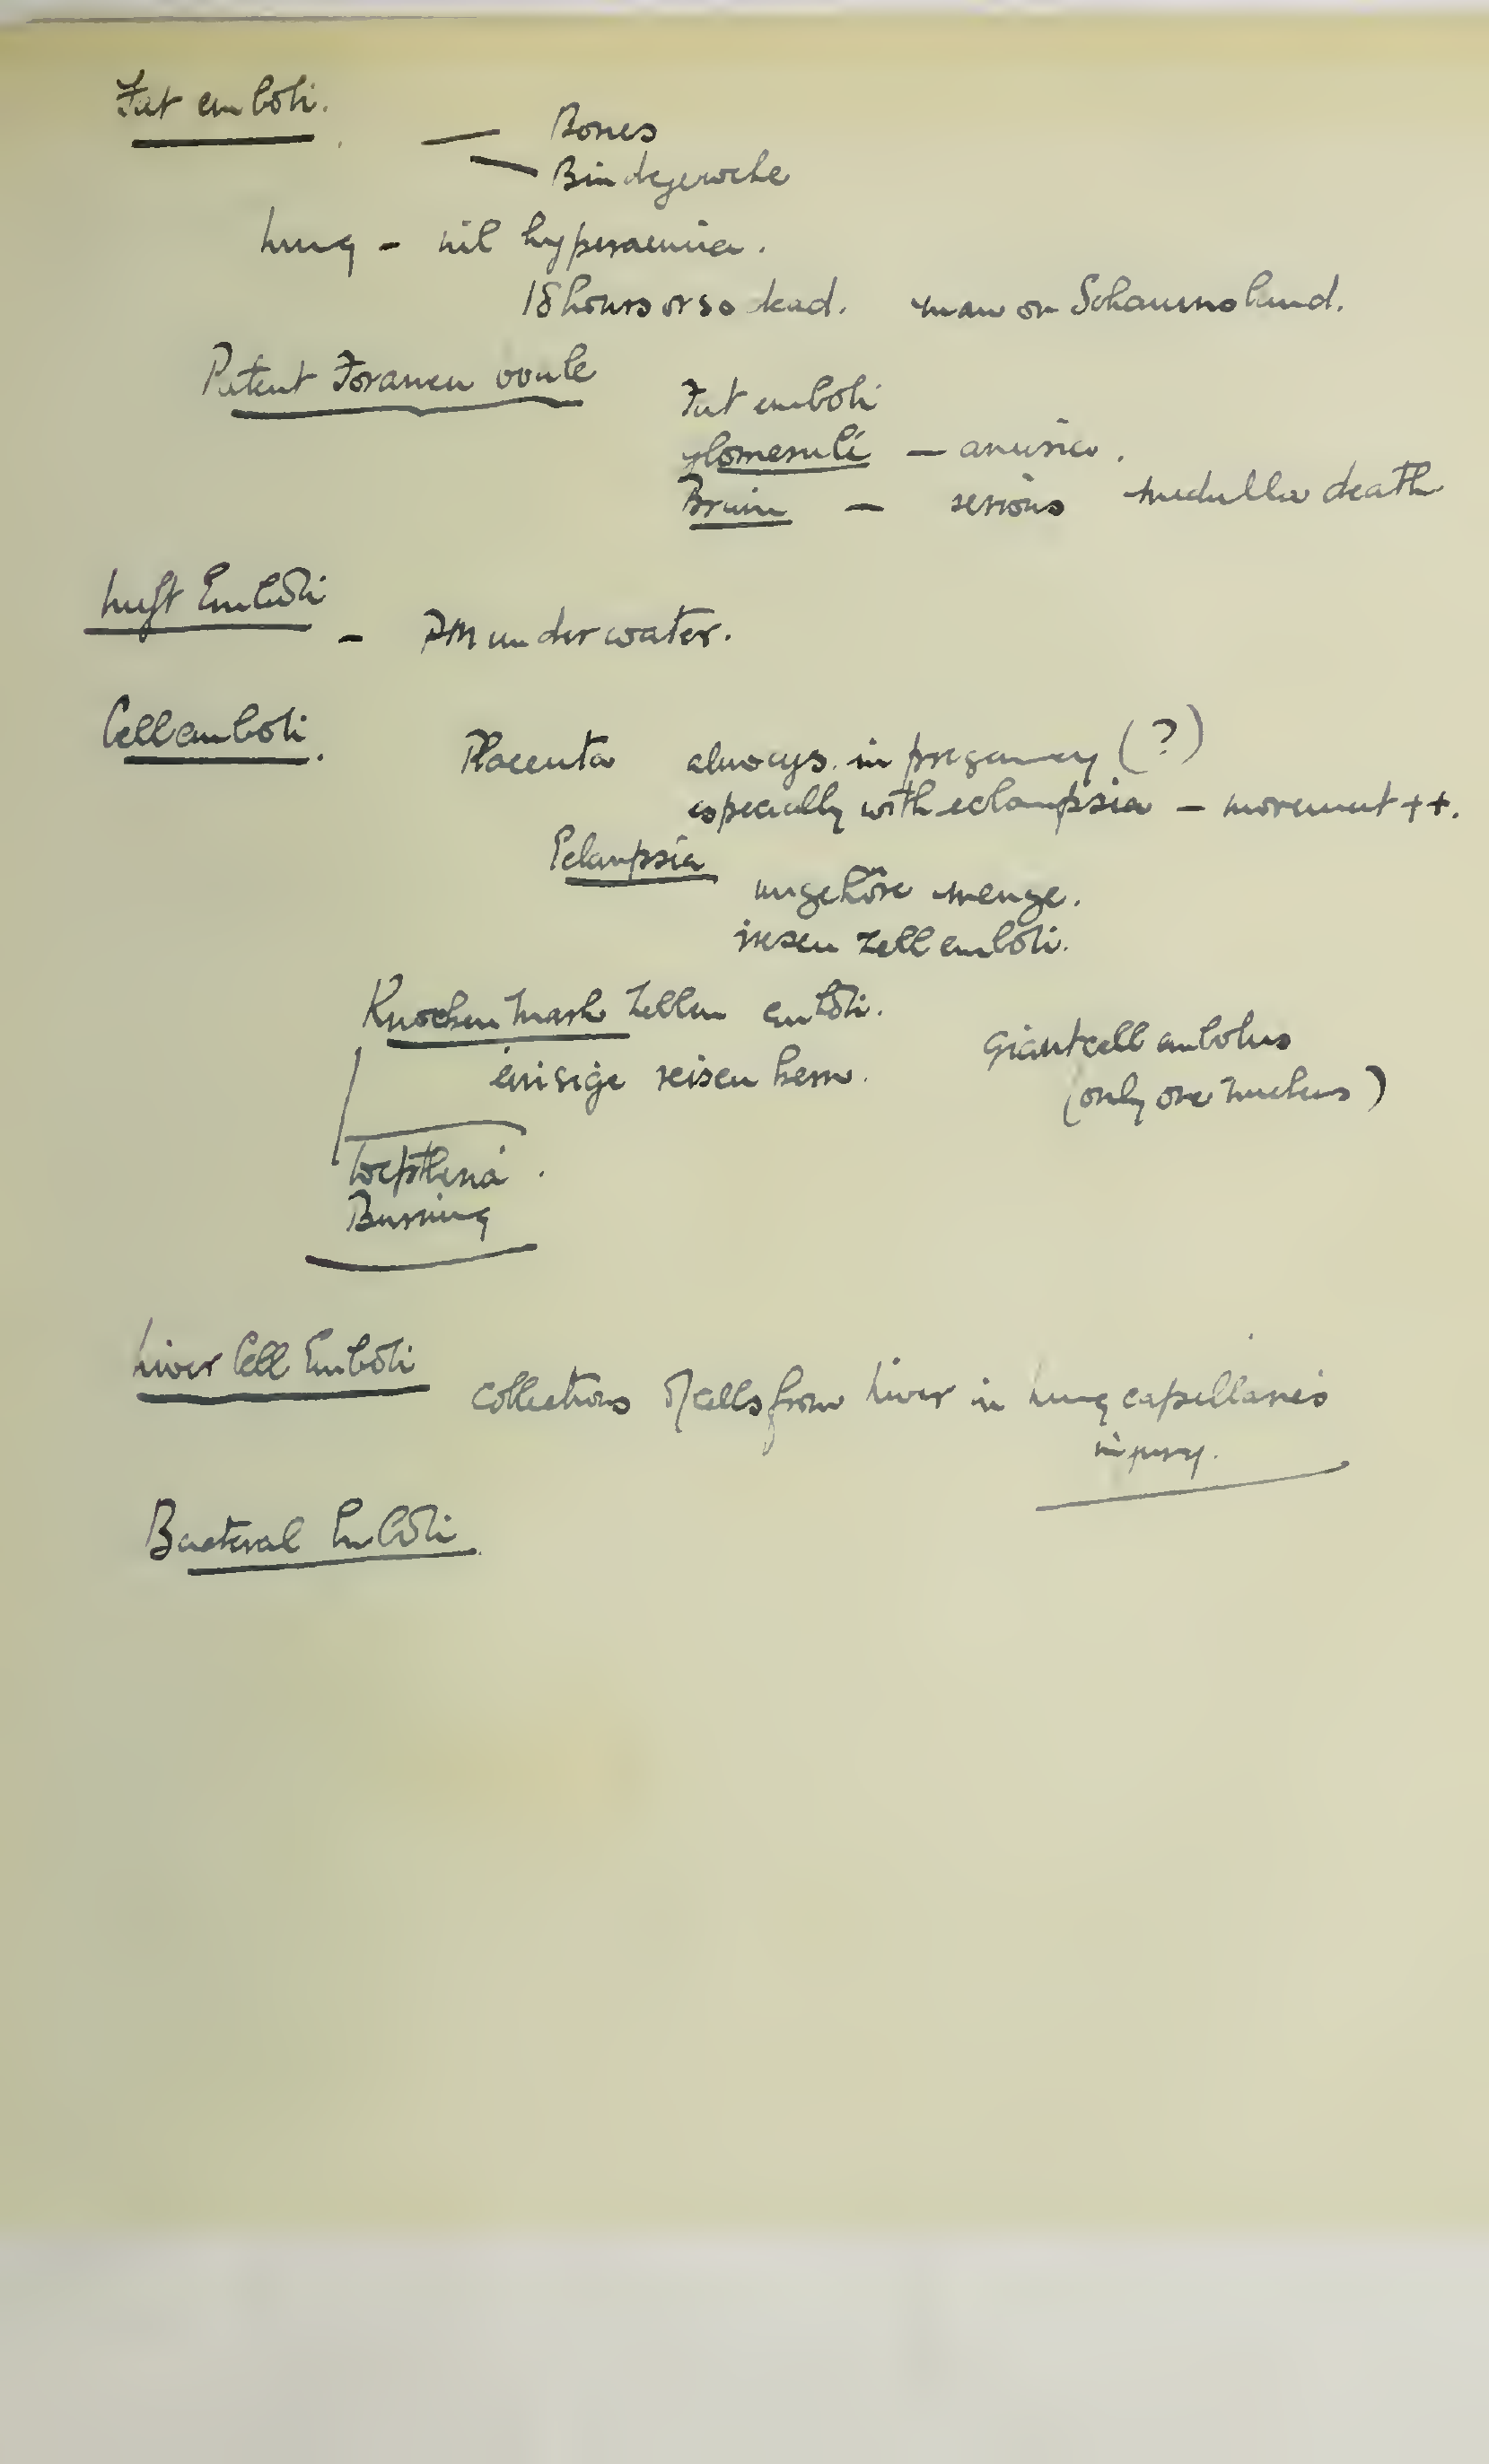 Fat emboli.
— Bones
— Bindegewebe
Lung - nil hyperaemia.
18 hours or so dead. man on Schauinsland.
Patent Foramen ovale
Fat emboli
glomeruli — anuria.
Brain — serious medulla death
Luft Emboli
- PM under water.
Cell emboli.
Placenta always in pregancy (?)
especially with eclampsia — movement ++.
Eclampsia
ungehöre menge.
riesen zell emboli.
Knochen Mark Zellen emboli.
einsige reisen kern.
Giant cell embolus
(only one nucleus)
Burning
Liver Cell Emboli
Collections of cells from liver in lung capillaries
injury.
Bacteral Emboli